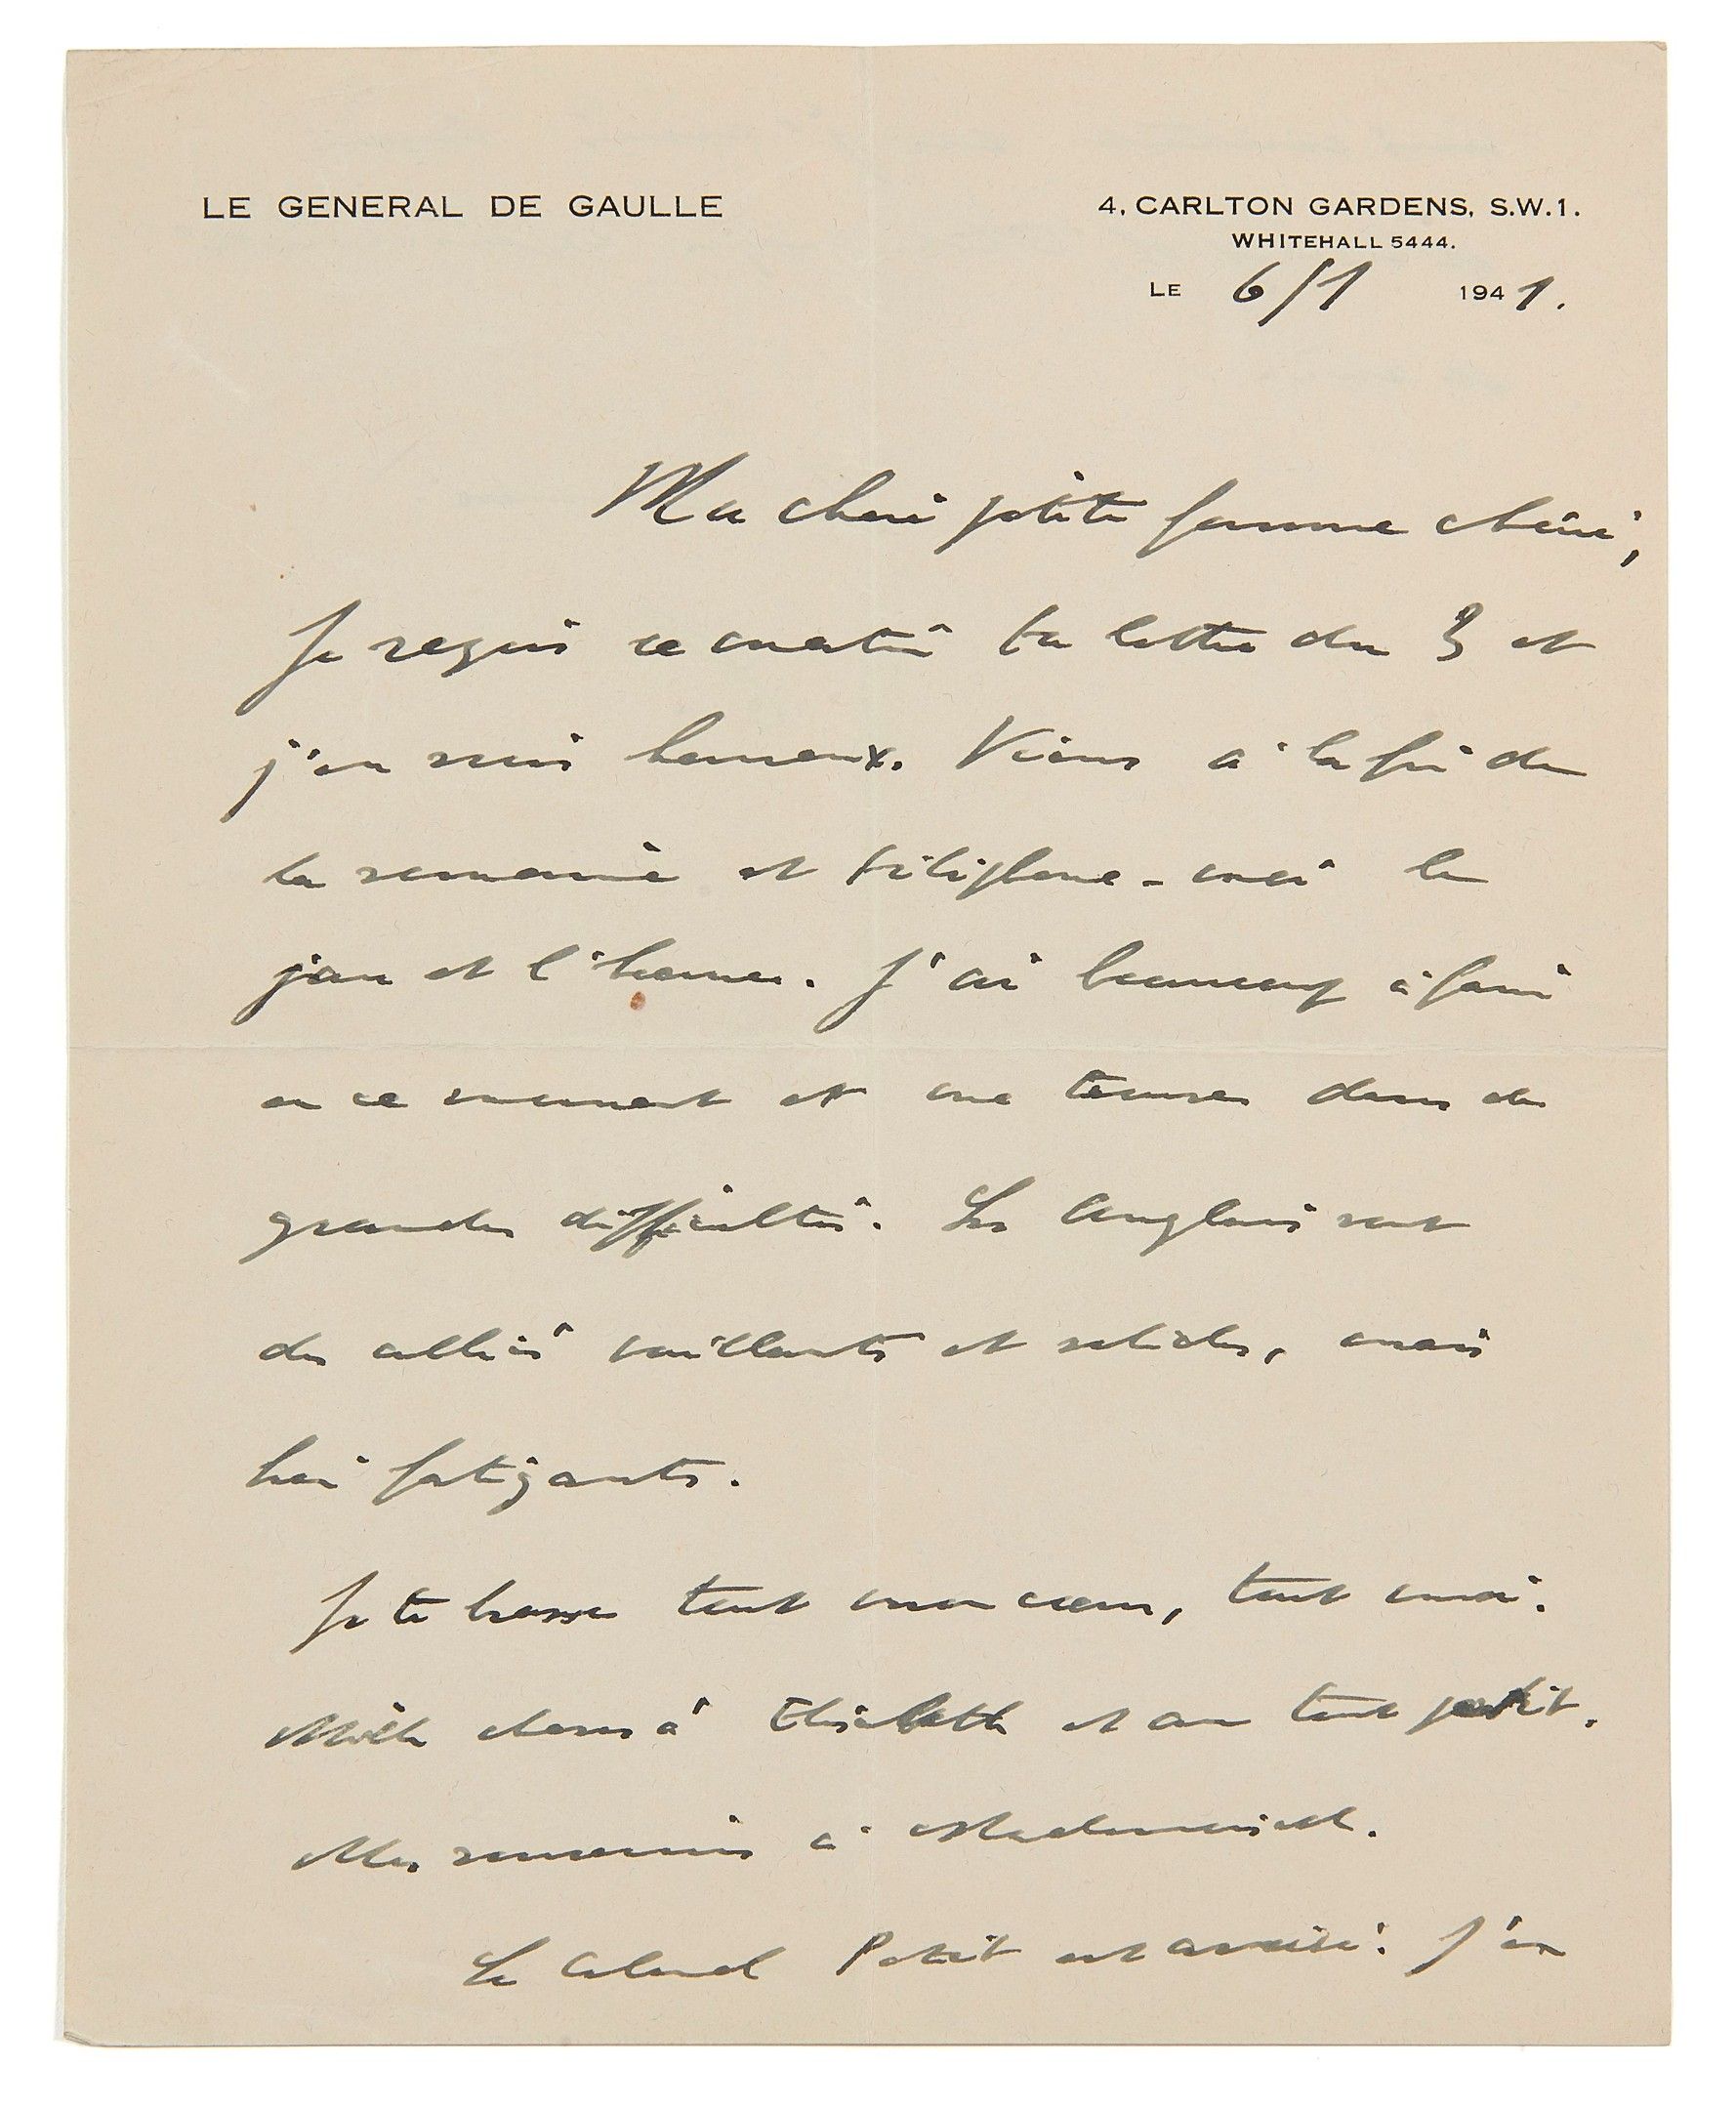 LE GENERAL DE GAULLE
4, CARLTON GARDENS, S.W.1.
WHITEHALL 5444.
LE 6/1 1941.
Ma chère petite femme chérie,
Je reçois ce matin ta lettre du 3 et
j'en suis heureux. Viens à la fin de
la semaine et téléphone-moi le
jour et l'heure. J'ai beaucoup à faire
en ce moment et me trouve dans de
grandes difficultés. Les Anglais sont
des alliés vaillants et solides, mais
bien fatigants.
Je te laisse tout mon cœur, tout moi.
Mille choses à Elisabeth et au tout petit.
Mes souvenirs à Mademoiselle.
Le Colonel Petit est arrivé. J'en